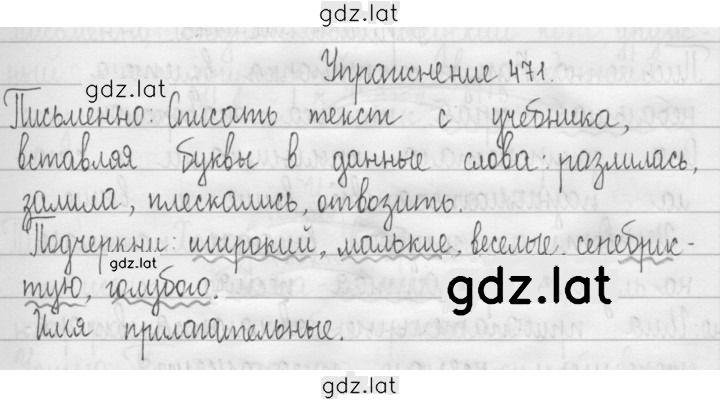 gdz.lat
Упражнение 471.
gdz.lat
Письменно: Списать текст с учебника,
вставляя буквы в данные слова: разлилась,
залила, плескались, отвозить.
Подчеркни: широкий, малькие, веселые. серебрис-
gdz.lat
тую, голубого.
gdz.lat
Имя прилагательные.
gdz.lat